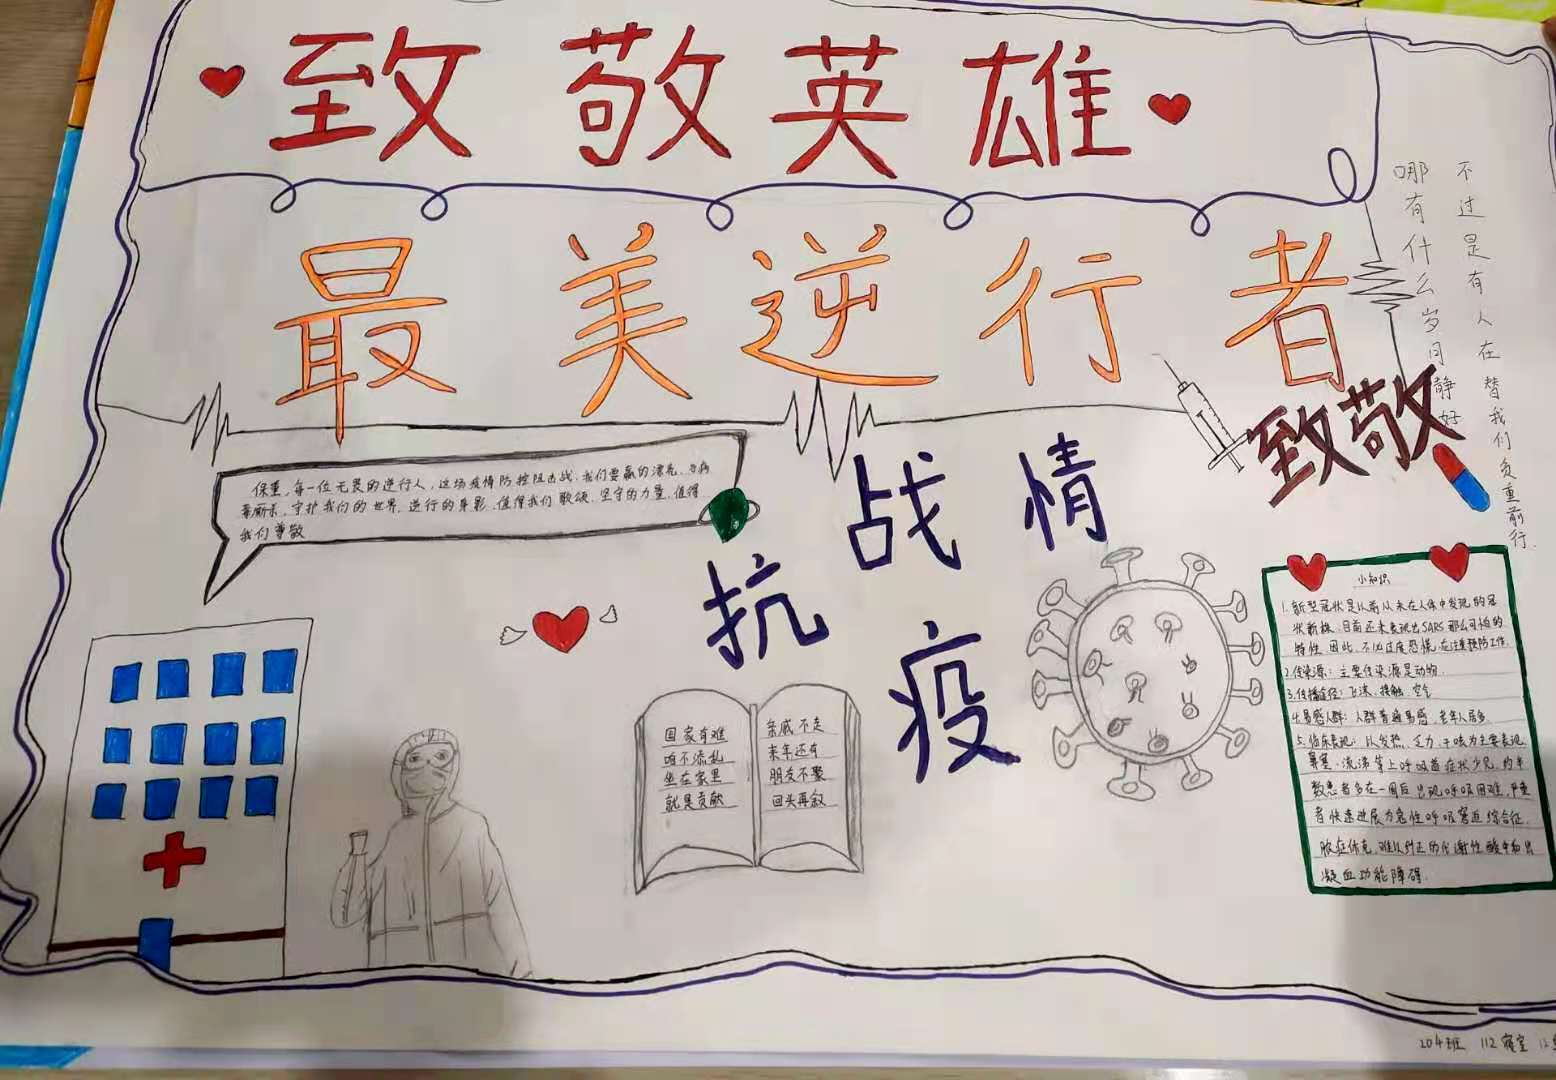 致敬英雄
最美逆行者
哪有什么岁月静好
不过是有人在替我们负重前行.
致敬
保重,每一位无畏的逆行人,这场疫情防控阻击战,我们要赢的漂亮.与病
毒厮杀,守护我们的世界.逆行的身影,值得我们歌颂.坚守的力量,值得
我们尊敬
抗战疫情
国家有难
咱不添乱
坐在家里
就是贡献
亲戚不走
来年还有
朋友不聚
回头再叙
小知识
1.新型冠状是以前从未在人体中发现的冠
状新株,目前还未表现出SARS那么可怕的
特性,因此,不必过度恐慌,应注重预防工作.
2.传染源:主要传染源是动物.
3.传播途径:飞沫、接触、空气
4.易感人群:人群普遍易感,老年人居多
5.临床表现:以发热、乏力、干咳为主要表现
鼻塞、流涕等上呼吸道症状少见,约半
数患者多在一周后出现呼吸困难,严重
者快速进展为急性呼吸窘迫综合征.
脓症休克,难以纠正的代谢性酸中毒和出
凝血功能障碍.
204班 112寝室